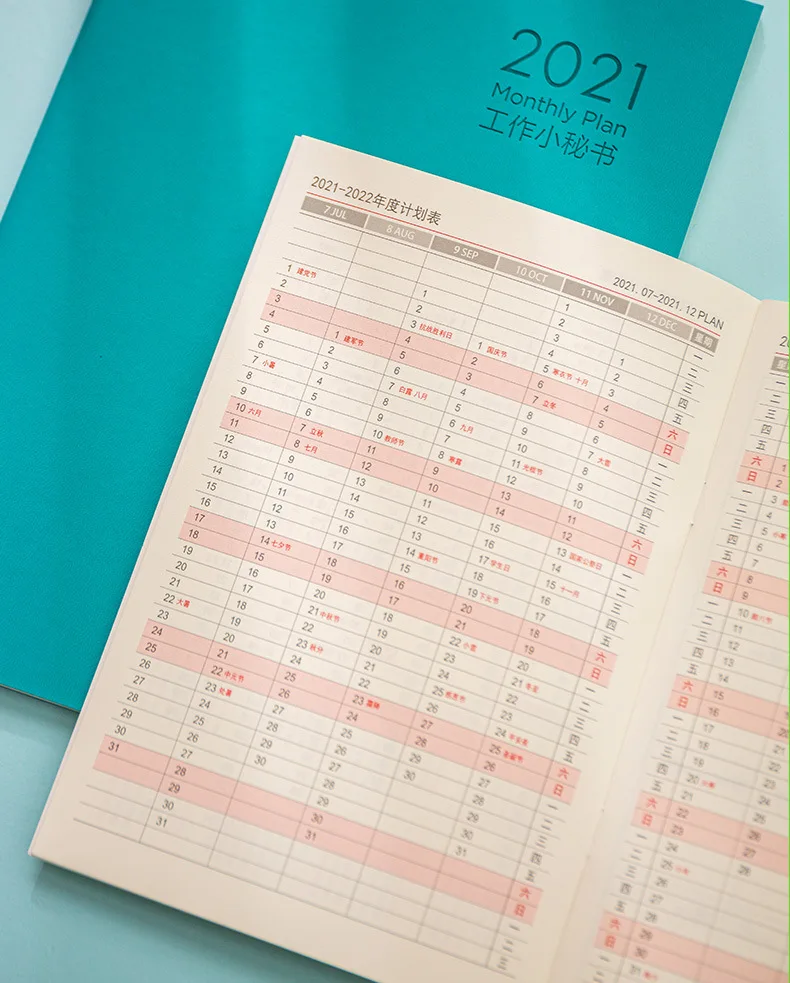 2021
Monthly Plan
工作小秘书
2021-2022年度计划表
2021. 07-2021. 12 PLAN
7 JUL 8 AUG 9 SEP 10 OCT 11 NOV 12 DEC 星期
1 一
2 二
1 3 1 三
1 建党节 2 4 2 四
2 3 抗战胜利日 1 国庆节 5 寒衣节 十月 3 五
3 4 2 6 4 六
4 1 建军节 5 3 7 立冬 5 日
5 2 6 4 8 6 一
6 3 7 白露 八月 5 9 7 大雪 二
7 小暑 4 8 6 九月 10 8 三
8 5 9 7 11 光棍节 9 四
9 6 10 教师节 8 寒露 12 10 五
10 六月 7 立秋 11 9 13 11 六
11 8 七月 12 10 14 12 日
12 9 13 11 15 13 国家公祭日 一
13 10 14 12 16 14 二
14 11 15 13 17 学生日 15 十一月 三
15 12 16 14 重阳节 18 16 四
16 13 17 15 19 下元节 17 五
17 14 七夕节 18 16 20 18 六
18 15 19 17 21 19 日
19 16 20 18 22 小雪 20 一
20 17 21 中秋节 19 23 21 冬至 二
21 18 22 20 24 22 三
22 大暑 19 23 秋分 21 25 感恩节 23 四
23 20 24 22 26 24 平安夜 五
24 21 25 23 霜降 27 25 圣诞节 六
25 22 中元节 26 24 28 26 日
26 23 处暑 27 25 29 27 一
27 24 28 26 30 28 二
28 25 29 27 29 三
29 26 30 28 30 四
30 27 29 31 五
31 28 30 六
29 31 日
30 一
31 二
三
一
二
三
四
五
六 1
日 2
一 3
二 4
三 5 小寒
四 6
五 7
六 8
日 9
一 10
二 11
三 12
四 13
五 14
六 15
日 16
一 17
二 18
三 19
四 20
五 21
六 22
日 23
一 24
二 25
三 26
四 27
五 28
六 29
日 30
一 31